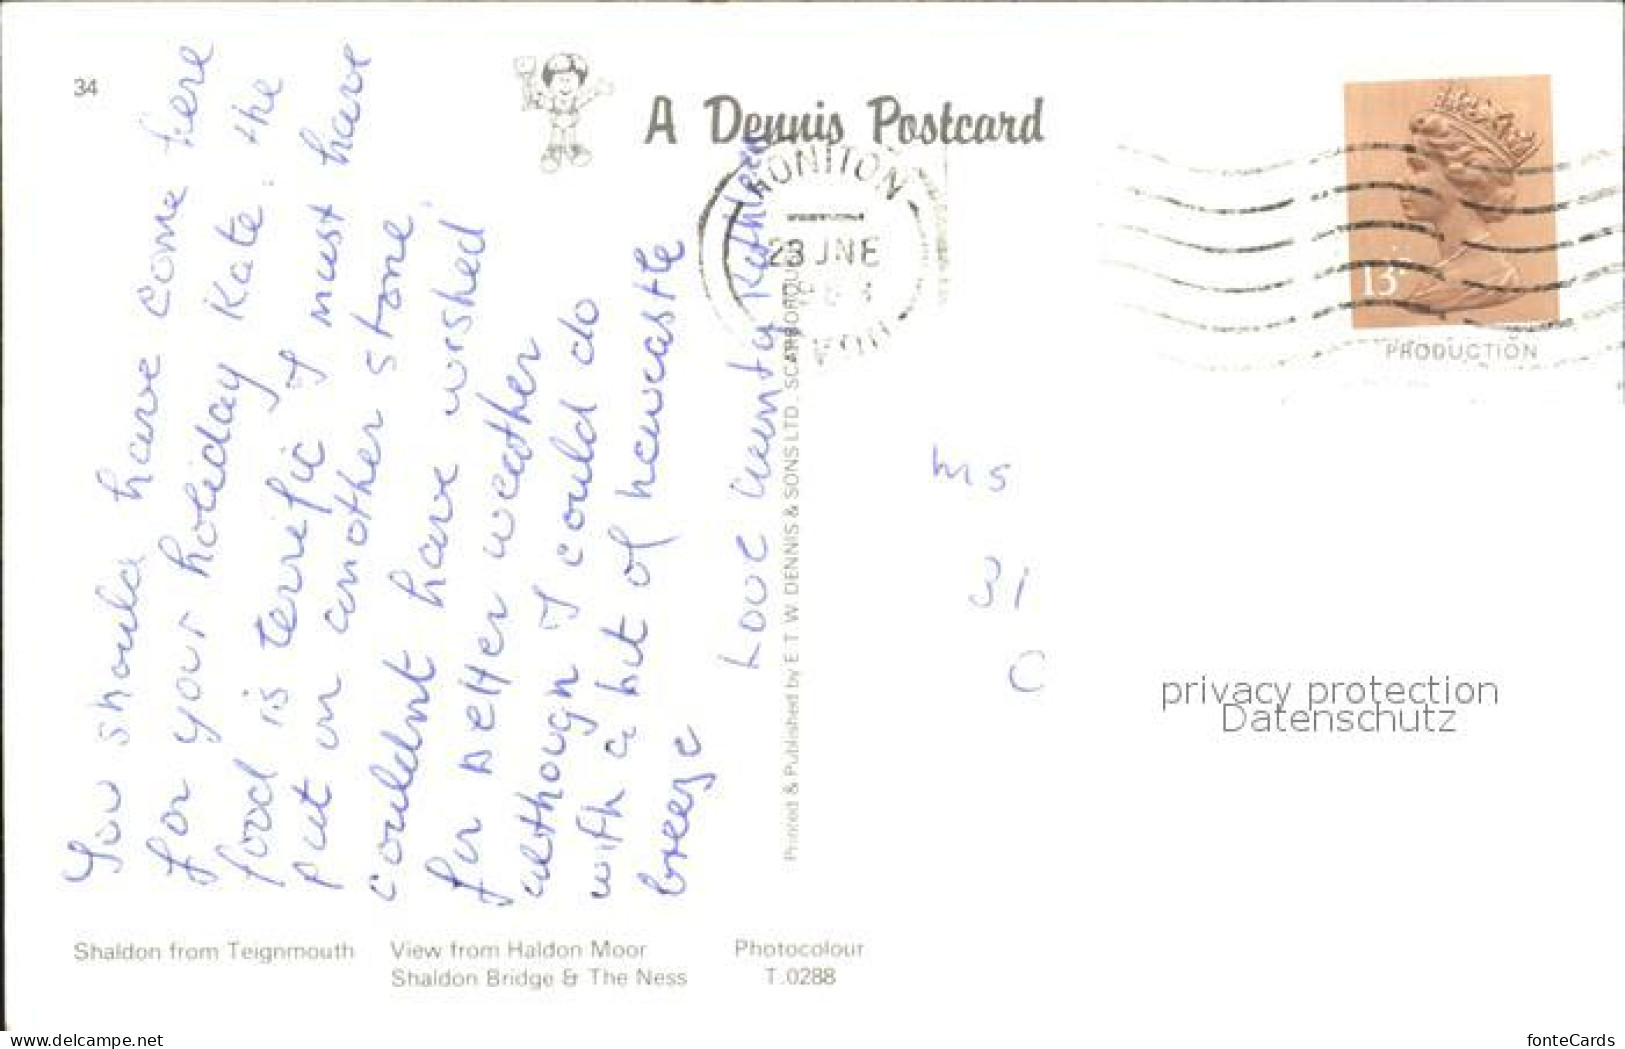 34
A Dennis Postcard
HONITON
23 JNE
13P
PRODUCTION
You should have come here
for your holiday Kate. the
food is terrific I must have
put on another stone.
couldnt have wished
for better weather
although I could do
with a bit of newcastle
breeze
Love Aunty Kathleen
Printed & Published by E T W DENNIS & SONS LTD. SCARBOROUGH
Ms
31
C
privacy protection
Datenschutz
Shaldon from Teignmouth
View from Haldon Moor
Shaldon Bridge & The Ness
Photocolour
T.0288
www.delcampe.net
fonteCards